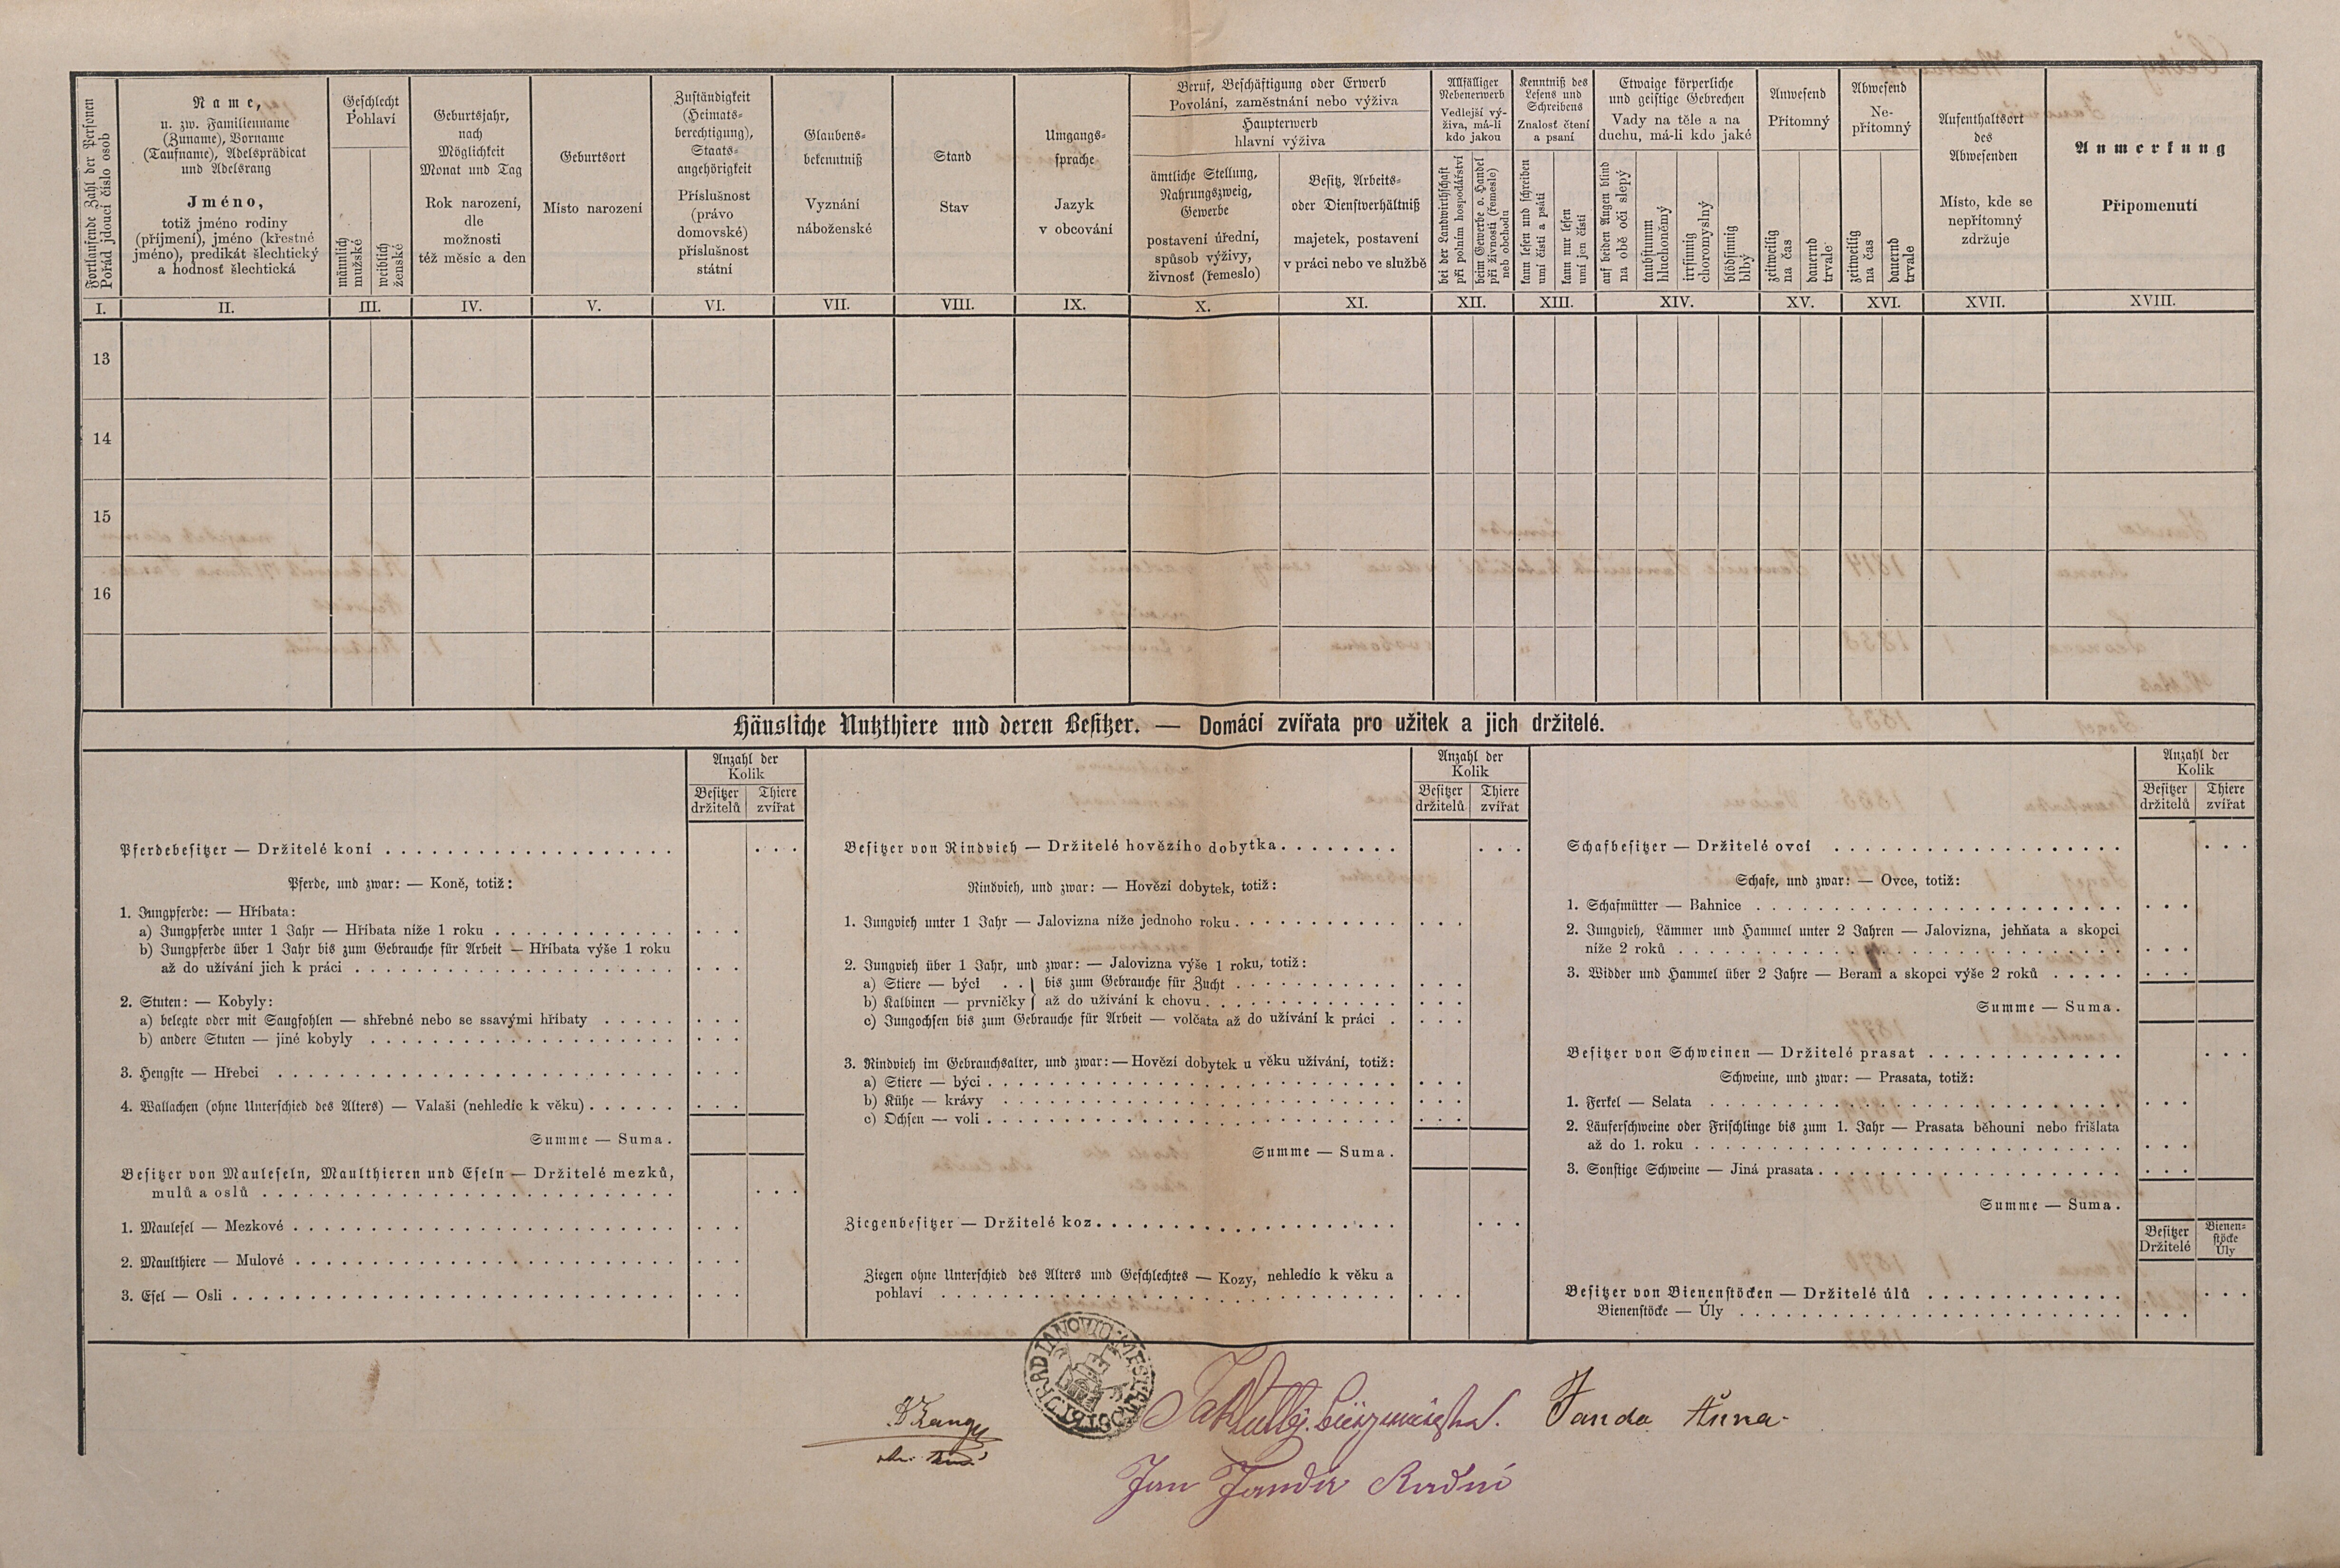 Fortlaufende Zahl der Personen
Pořád jdoucí číslo osob
Name,
u. zw. Familienname
(Zuname), Vorname
(Taufname), Adelsprädicat
und Adelsrang
Jméno,
totiž jméno rodiny
(příjmení), jméno (křestné
jméno), predikát šlechtický
a hodnosť šlechtická
Geschlecht
Pohlaví
männlich
mužské
weiblich
ženské
Geburtsjahr,
nach
Möglichkeit
Monat und Tag
Rok narození,
dle
možnosti
též měsíc a den
Geburtsort
Místo narození
Zuständigkeit
(Heimats-
berechtigung),
Staats-
angehörigkeit
Příslušnost
(právo
domovské)
příslušnost
státní
Glaubens-
bekenntniß
Vyznání
náboženské
Stand
Stav
Umgangs-
sprache
Jazyk
v obcování
Beruf, Beschäftigung oder Erwerb
Povolání, zaměstnání nebo výživa
Haupterwerb
hlavní výživa
ämtliche Stellung,
Nahrungszweig,
Gewerbe
postavení úřední,
spůsob výživy,
živnosť (řemeslo)
Besitz, Arbeits-
oder Dienstverhältniß
majetek, postavení
v práci nebo ve službě
Allfälliger
Nebenerwerb
Vedlejší vý-
živa, má-li
kdo jakou
bei der Landwirthschaft
při polním hospodářství
beim Gewerbe o. Handel
při živnosti (řemesle)
neb obchodu
Kenntniß des
Lesens und
Schreibens
Znalosť čtení
a psaní
kann lesen und schreiben
umí čísti a psáti
kann nur lesen
umí jen čísti
Etwaige körperliche
und geistige Gebrechen
Vady na těle a na
duchu, má-li kdo jaké
auf beiden Augen blind
na obě oči slepý
taubstumm
hluchoněmý
irrsinnig
choromyslný
blödsinnig
blbý
Anwesend
Přítomný
zeitweilig
na čas
dauernd
trvale
Abwesend
Ne-
přítomný
zeitweilig
na čas
dauernd
trvale
Aufenthaltsort
des
Abwesenden
Místo, kde se
nepřítomný
zdržuje
Anmerkung
Připomenutí
I. II. III. IV. V. VI. VII. VIII. IX. X. XI. XII. XIII. XIV. XV. XVI. XVII. XVIII.
13
14
15
16
Häusliche Nutzthiere und deren Besitzer. — Domácí zvířata pro užitek a jich držitelé.
Anzahl der
Kolik
Besitzer
držitelů
Thiere
zvířat
Pferdebesitzer — Držitelé koní
Pferde, und zwar: — Koně, totiž:
1. Jungpferde: — Hříbata:
a) Jungpferde unter 1 Jahr — Hříbata níže 1 roku
b) Jungpferde über 1 Jahr bis zum Gebrauche für Arbeit — Hříbata výše 1 roku
až do užívání jich k práci
2. Stuten: — Kobyly:
a) belegte oder mit Saugfohlen — shřebné nebo se ssavými hříbaty
b) andere Stuten — jiné kobyly
3. Hengste — Hřebci
4. Wallachen (ohne Unterschied des Alters) — Valaši (nehledíc k věku)
Summe — Suma.
Besitzer von Mauleseln, Maulthieren und Eseln — Držitelé mezků,
mulů a oslů
1. Maulesel — Mezkové
2. Maulthiere — Mulové
3. Esel — Osli
Anzahl der
Kolik
Besitzer
držitelů
Thiere
zvířat
Besitzer von Rindvieh — Držitelé hovězího dobytka
Rindvieh, und zwar: — Hovězí dobytek, totiž:
1. Jungvieh unter 1 Jahr — Jalovizna níže jednoho roku
2. Jungvieh über 1 Jahr, und zwar: — Jalovizna výše 1 roku, totiž:
a) Stiere — býci . . } bis zum Gebrauche für Zucht
b) Kalbinen — prvničky } až do užívání k chovu
c) Jungochsen bis zum Gebrauche für Arbeit — volčata až do užívání k práci
3. Rindvieh im Gebrauchsalter, und zwar: — Hovězí dobytek u věku užívání, totiž:
a) Stiere — býci
b) Kühe — krávy
c) Ochsen — voli
Summe — Suma.
Ziegenbesitzer — Držitelé koz
Ziegen ohne Unterschied des Alters und Geschlechtes — Kozy, nehledíc k věku a
pohlaví
Anzahl der
Kolik
Besitzer
držitelů
Thiere
zvířat
Schafbesitzer — Držitelé ovcí
Schafe, und zwar: — Ovce, totiž:
1. Schafmütter — Bahnice
2. Jungvieh, Lämmer und Hammel unter 2 Jahren — Jalovizna, jehňata a skopci
níže 2 roků
3. Widder und Hammel über 2 Jahre — Berani a skopci výše 2 roků
Summe — Suma.
Besitzer von Schweinen — Držitelé prasat
Schweine, und zwar: — Prasata, totiž:
1. Ferkel — Selata
2. Läuferschweine oder Frischlinge bis zum 1. Jahr — Prasata běhouni nebo frišlata
až do 1. roku
3. Sonstige Schweine — Jiná prasata
Summe — Suma.
Besitzer
Držitelé
Bienen-
stöcke
Úly
Besitzer von Bienenstöcken — Držitelé úlů
Bienenstöcke — Úly
Janda Anna
Jan Janda Radní